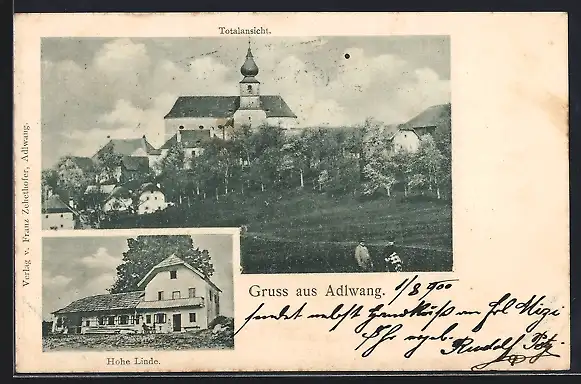 Totalansicht.
Verlag v. Franz Zehethofer, Adlwang.
Gruss aus Adlwang.
Hohe Linde.
1/8 900
sendet nebst Handkuß an frl Mizi
Ihr erg.
Rudolf